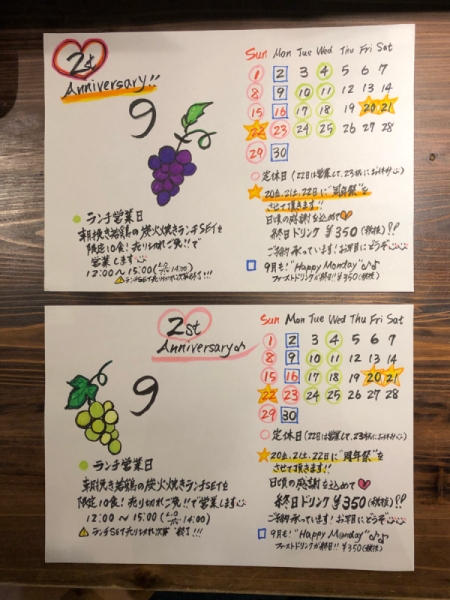 2st
Anniversary!!
9
Sun Mon Tue Wed Thu Fri Sat
1 2 3 4 5 6 7
8 9 10 11 12 13 14
15 16 17 18 19 20 21
22 23 24 25 26 27 28
29 30
○定休日(22日は営業して、23日にお休み
☆20日、21日、22日に"周年祭"を
させて頂きます!!
日頃の感謝を込めて
終日ドリンク¥350(税抜)??
ご予約承っています!お早目にどうぞ
□9月も!"Happy Monday"♪♪
ファーストドリンクが終日!!¥350(税抜)
●ランチ営業日
朝挽き若鶏の炭火焼きランチSETを
限定10食!売り切れご免!!で
営業します
12:00〜15:00(L.O 14:00)
ランチSET売り切れ次第終了!!!
2st
Anniversary♪
9
Sun Mon Tue Wed Thu Fri Sat
1 2 3 4 5 6 7
8 9 10 11 12 13 14
15 16 17 18 19 20 21
22 23 24 25 26 27 28
29 30
○定休日(22日は営業して、23日にお休み
☆20日、21日、22日に"周年祭"を
させて頂きます!!
日頃の感謝を込めて
終日ドリンク¥350(税抜)??
ご予約承っています!お早目にどうぞ
□9月も!"Happy Monday"♪♪
ファーストドリンクが終日!!¥350(税抜)
●ランチ営業日
朝挽き若鶏の炭火焼きランチSETを
限定10食!売り切れご免!!で営業します
12:00〜15:00(L.O 14:00)
ランチSET売り切れ次第終了!!!